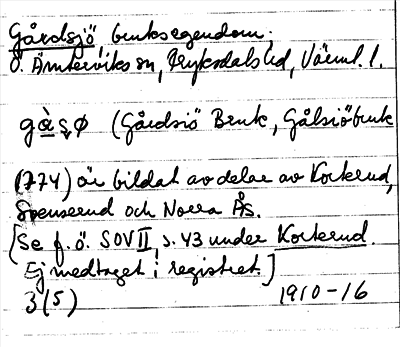 Gårdsjö, bruksegendom,
Ö. Ämterviks sn, Fryksdals hd, Värml. l.
gὰşø (Gårdsiö Bruk, Gålsiöbruk
1774) är bildat av delar av Korterud,
Svenserud och Norra Ås.
[Se f. ö. SOV II s. 43 under Korterud.
Ej medtaget i registret.]
3(5) 1910-16